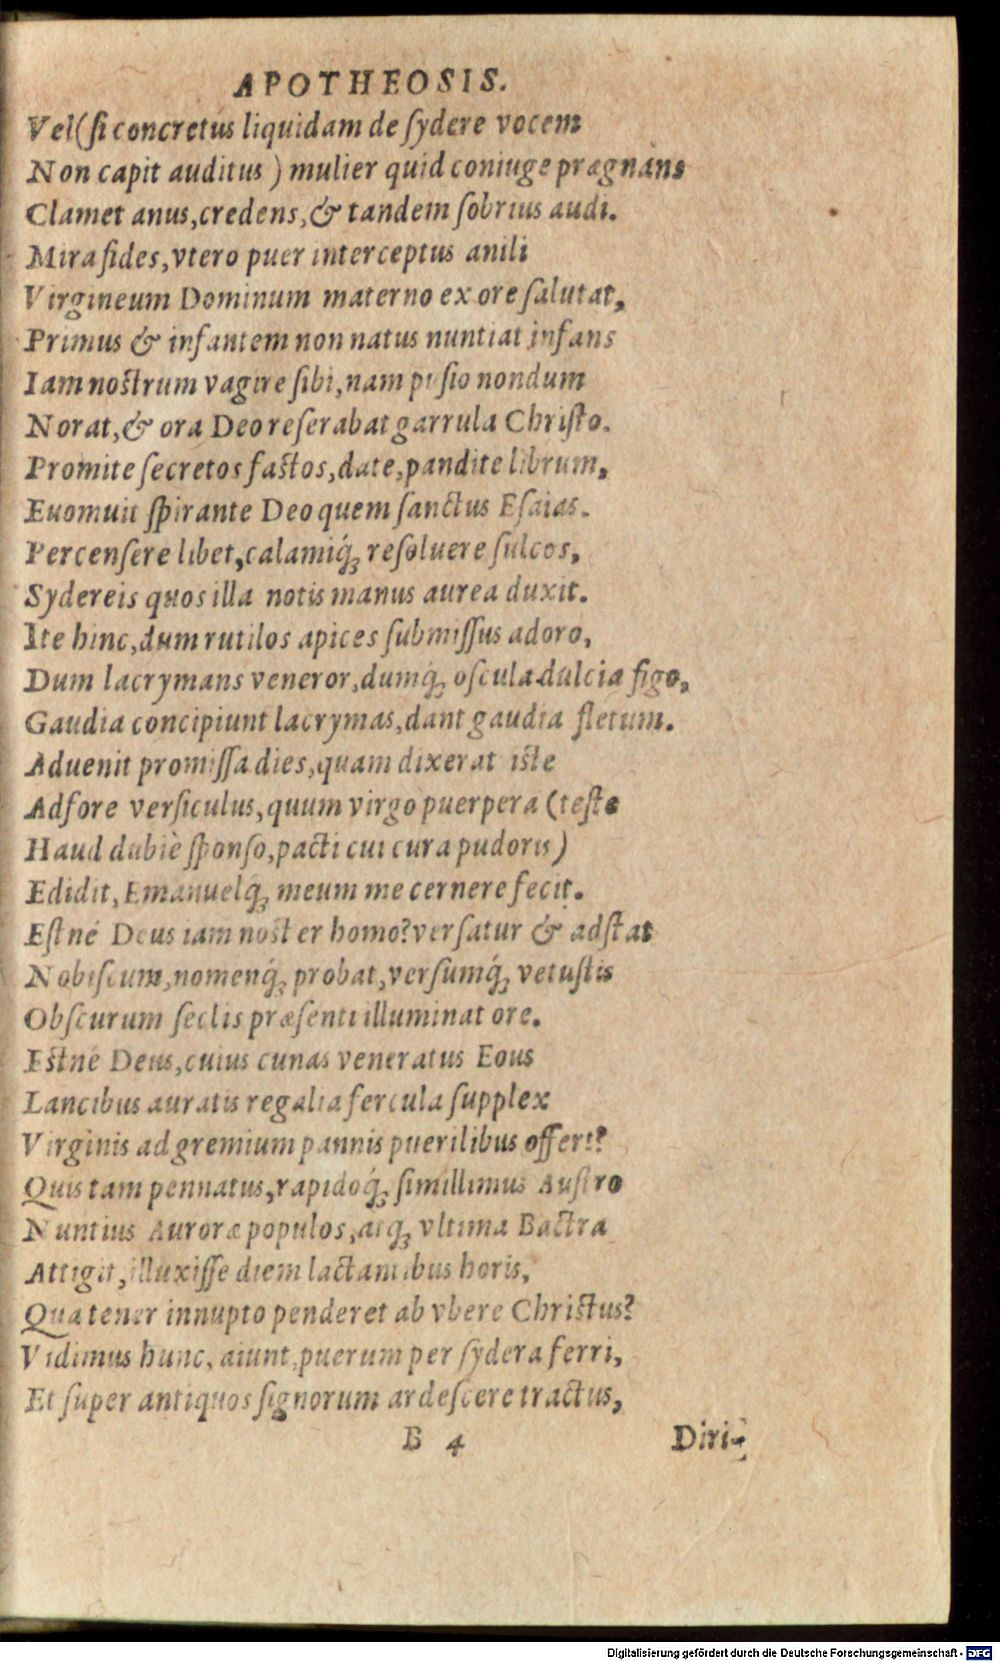 APOTHEOSIS.
Vel(ſi concretus liquidam de ſydere vocem
Non capit auditus) mulier quid coniuge prægnans
Clamet anus,credens,& tandem ſobrius audi.
Mira fides,vtero puer interceptus anili
Virgineum Dominum materno ex ore ſalutat,
Primus & infantem non natus nuntiat infans
Iam noſtrum vagire ſibi,nam puſio nondum
Norat,& ora Deo reſerabat garrula Chriſto.
Promite ſecretos faſtos,date,pandite librum,
Euomuit ſpirante Deo quem ſanctus Eſaias.
Percenſere libet,calamiq́ꝫ reſoluere ſulcos,
Sydereis quos illa notis manus aurea duxit.
Ite hinc,dum rutilos apices ſubmiſſus adoro,
Dum lacrymans veneror,dumq́ꝫ oſcula dulcia figo,
Gaudia concipiunt lacrymas,dant gaudia fletum.
Aduenit promiſſa dies,quam dixerat iſte
Adfore verſiculus,quum virgo puerpera (teſte
Haud dubiè ſponſo,pacti cui cura pudoris)
Edidit,Emanuelq́ꝫ meum me cernere fecit.
Eſtné Deus iam noſter homo?verſatur & adſtat
Nobiſcum,nomenq́ꝫ probat,verſumq́ꝫ vetuſtis
Obſcurum ſeclis præſenti illuminat ore.
Eſtné Deus,cuius cunas veneratus Eous
Lancibus auratis regalia fercula ſupplex
Virginis ad gremium pannis puerilibus offert?
Quis tam pennatus,rapidoq́ꝫ ſimillimus Auſtro
Nuntius Auroræ populos,atqꝫ vltima Bactra
Attigit,illuxiſſe diem lactantibus horis,
Qua tener innupto penderet ab vbere Chriſtus?
Vidimus hunc, aiunt,puerum per ſydera ferri,
Et ſuper antiquos ſignorum ardeſcere tractus,
B 4 Diri-
Digitalisierung gefördert durch die Deutsche Forschungsgemeinschaft - DFG